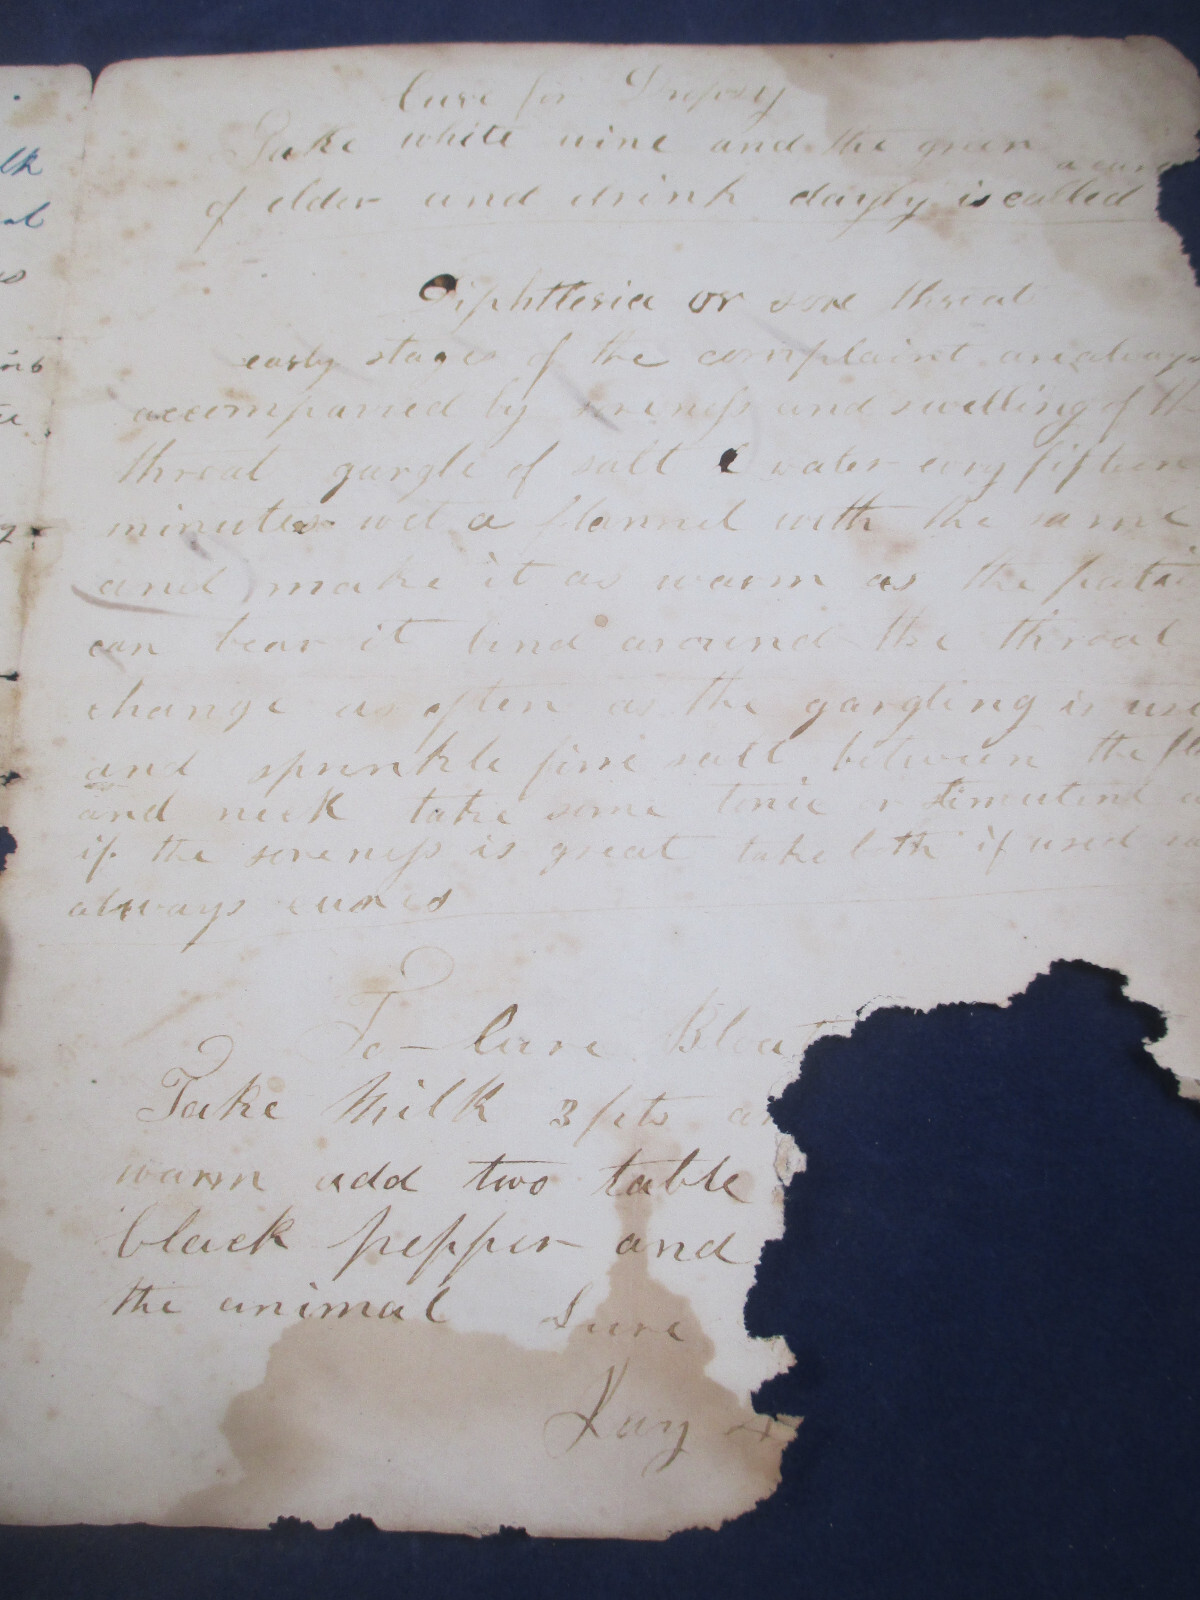 Cure for Dropsy
Take white wine and the green
a cure
of elder and drink dayly is called
Diphtheria or sore throat
early stages of the complaint are always
accompanied by soreness and swelling of th
throat gargle of salt & water evry fifteen
minutes wet a flannel with the same
and make it as warm as the patie
can bear it bind around the throat
change as often as the gargling is use
and sprinkle fine salt between the fl
and neck take some tonic or stimulent
if the soreness is great take both if used
always cures
To Cure Bloat
Take Milk 3 pts an
warm add two table
black pepper and
the animal Sure
lk